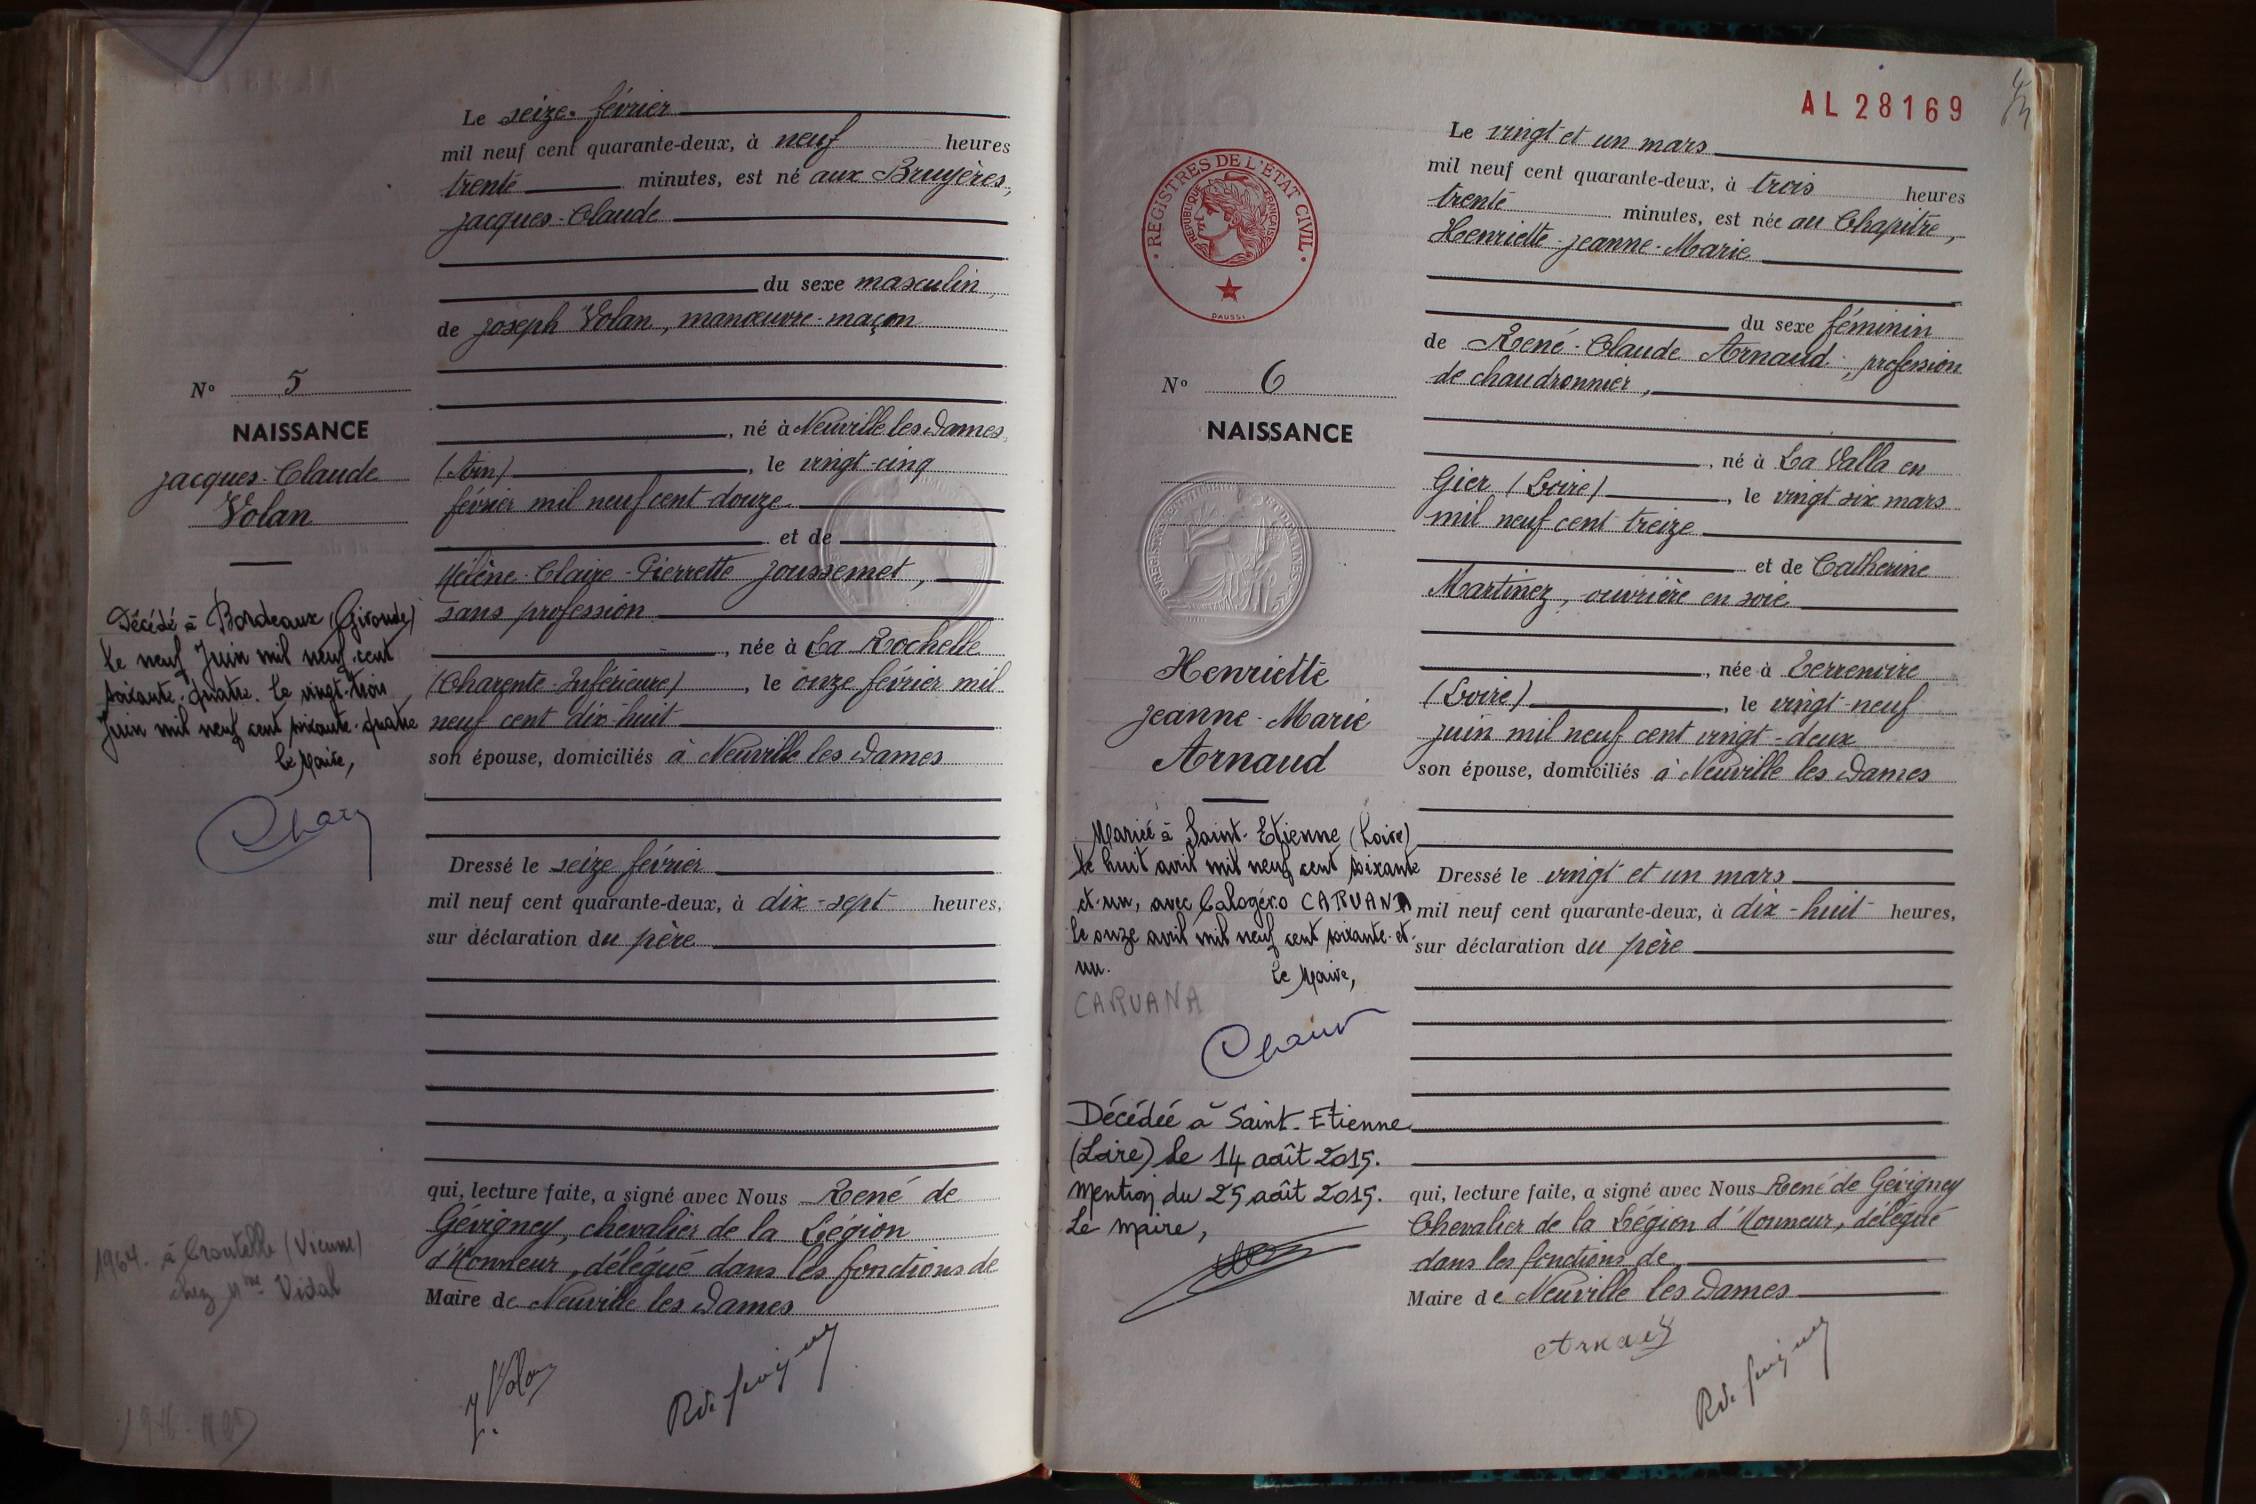 Le seize février
mil neuf cent quarante-deux, à neuf heures
trente minutes, est né aux Bruyères,
Jacques-Claude
du sexe masculin,
de Joseph Volan, manœuvre-maçon
, né à Neuville les Dames
(Ain), le vingt-cinq
février mil neuf cent douze
et de
Hélène-Claire-Pierrette Joussemet,
sans profession
, née à La Rochelle
(Charente-Inférieure), le onze février mil
neuf cent dix-huit
son épouse, domiciliés à Neuville les Dames
Dressé le seize février
mil neuf cent quarante-deux, à dix-sept heures,
sur déclaration du père
qui, lecture faite, a signé avec Nous René de
Gévigney, chevalier de la Légion
d'Honneur, délégué dans les fonctions de
Maire de Neuville les Dames
J. Volan
N° 5
NAISSANCE
Jacques-Claude
Volan
Décédé à Bordeaux (Gironde)
le neuf Juin mil neuf cent
soixante-quatre. Le vingt-trois
Juin mil neuf cent soixante-quatre
Le Maire,
1964. à Croutelle (Vienne)
chez Mme Vidal
AL 28169
REGISTRES DE L'ETAT CIVIL
REPUBLIQUE FRANÇAISE
DAUSSI
N° 6
NAISSANCE
Henriette
Jeanne-Marie
Arnaud
Mariée à Saint-Etienne (Loire)
le huit avril mil neuf cent soixante
et-un, avec Calogéro CARUANA
le onze avril mil neuf cent soixante-et-
un.
Le Maire,
CARUANA
Décédée à Saint-Etienne
(Loire) le 14 août 2015.
Mention du 25 août 2015.
Le Maire,
Le vingt et un mars
mil neuf cent quarante-deux, à trois heures
trente minutes, est née au Chapitre,
Henriette-Jeanne-Marie
du sexe féminin
de René-Claude Arnaud, profession
de chaudronnier,
, né à La Valla en
Gier (Loire), le vingt six mars
mil neuf cent treize
et de Catherine
Martinez, ouvrière en soie
, née à Terrenoire
(Loire), le vingt-neuf
juin mil neuf cent vingt-deux
son épouse, domiciliés à Neuville les Dames
Dressé le vingt et un mars
mil neuf cent quarante-deux, à dix-huit heures,
sur déclaration du père
qui, lecture faite, a signé avec Nous René de Gévigney
Chevalier de la Légion d'Honneur, délégué
dans les fonctions de
Maire de Neuville les Dames
Arnaud